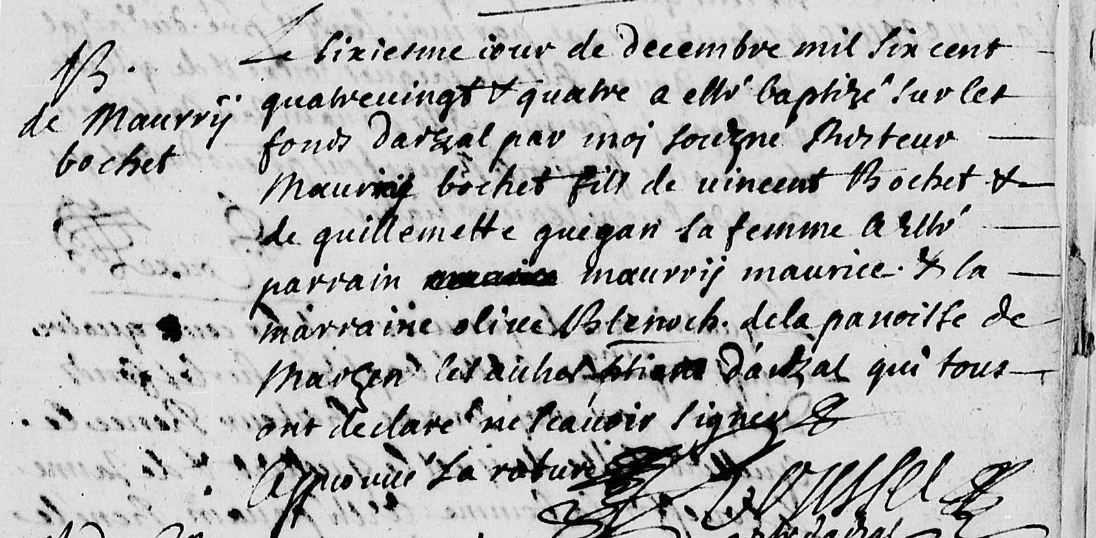 B.
de Maurrij
bochet
Le sixiesme iour de decembre mil six cent
quatrevingt & quatre a esté baptizé sur les
fonds darzal par moi souzné Recteur
Maurrij bochet fils de vincent Bochet &
de guillemette guegan sa femme a esté
parrain maurrij maurice. & la
marraine oliue de la paroisse de
Marzen les autres darzal qui tous
ont declaré ne scauoir signer &
Approuué la rature